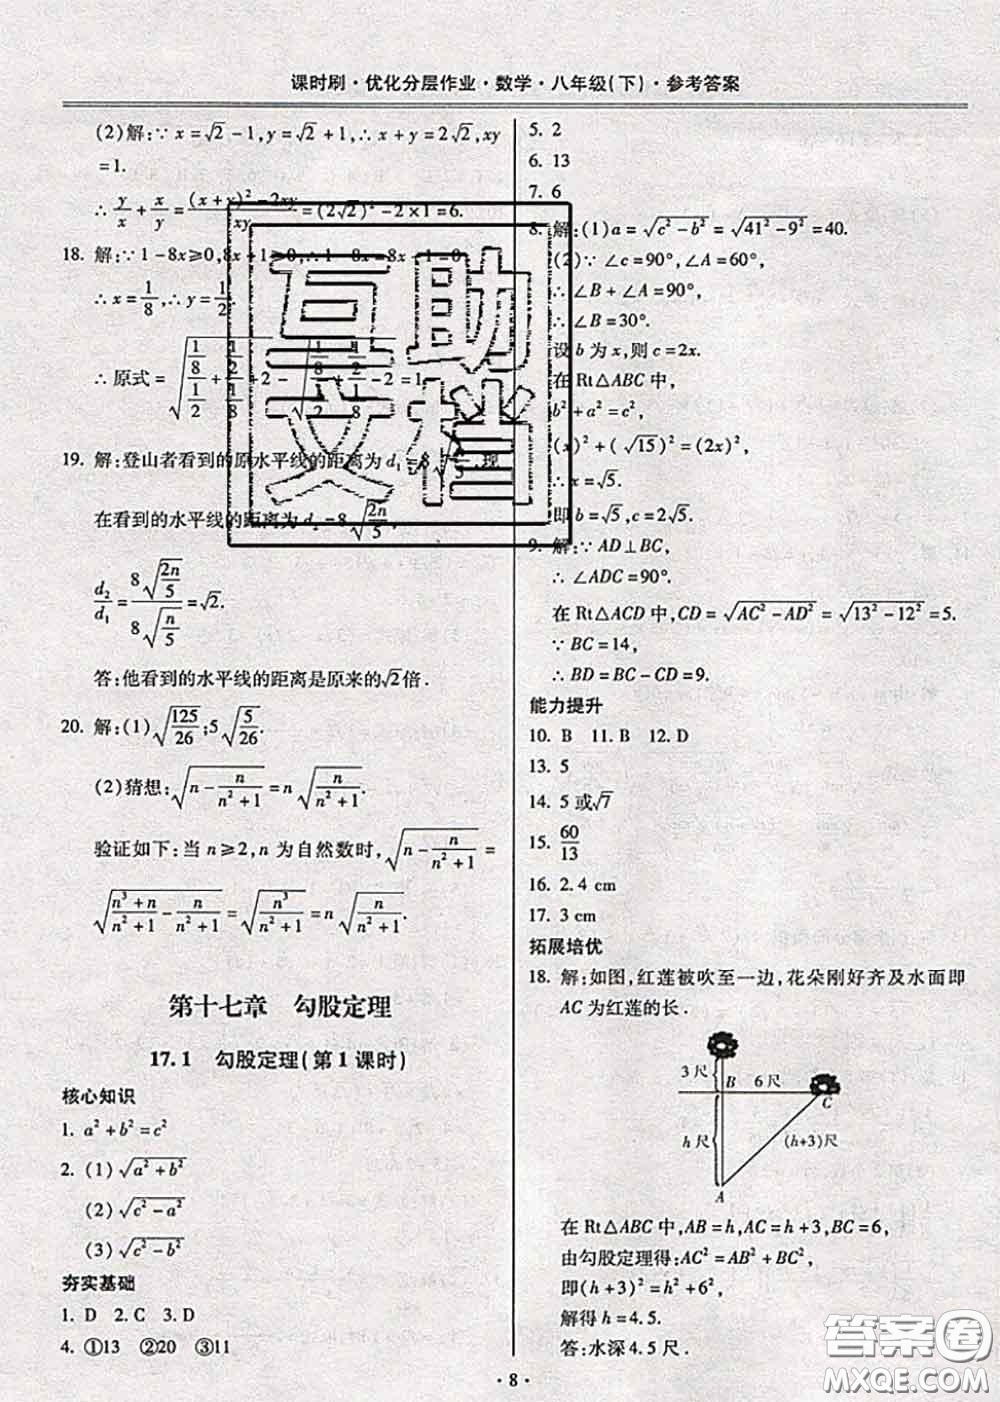 课时刷·优化分层作业·数学·八年级(下)·参考答案
(2)解:∵x=√2-1,y=√2+1,∴x+y=2√2,xy
=1.
∴y/x+x/y=((x+y)²-2xy)/xy=(2√2)²-2×1=6.
18. 解:∵1-8x≥0,8x-1≥0,∴1-8x=8x-1=0
∴x=1/8,∴y=1/2.
19. 解:登山者看到的原水平线的距离为d₁=8√(n/5),现
在看到的水平线的距离为d₂=8√(2n/5),
d₂/d₁=8√(2n/5)/8√(n/5)=√2.
答:他看到的水平线的距离是原来的√2倍.
20. 解:(1)√(125/26);5√(5/26).
(2)猜想:√(n-n/(n²+1))=n√(n/(n²+1)).
验证如下:当n≥2,n为自然数时,√(n-n/(n²+1))=
√((n³+n)/(n²+1)-n/(n²+1))=√(n³/(n²+1))=n√(n/(n²+1)).
第十七章 勾股定理
17.1 勾股定理(第1课时)
核心知识
1. a²+b²=c²
2. (1)√(a²+b²)
(2)√(c²-a²)
(3)√(c²-b²)
夯实基础
1. D 2. C 3. D
4. ①13 ②20 ③11
5. 2
6. 13
7. 6
8. 解:(1)a=√(c²-b²)=√(41²-9²)=40.
(2)∵∠c=90°,∠A=60°,
∴∠B+∠A=90°,
∴∠B=30°.
设b为x,则c=2x.
在Rt△ABC中,
b²+a²=c²,
(x)²+(√15)²=(2x)²,
∴x=√5.
即b=√5,c=2√5.
9. 解:∵AD⊥BC,
∴∠ADC=90°.
在Rt△ACD中,CD=√(AC²-AD²)=√(13²-12²)=5.
∵BC=14,
∴BD=BC-CD=9.
能力提升
10. B 11. B 12. D
13. 5
14. 5或√7
15. 60/13
16. 2.4 cm
17. 3 cm
拓展培优
18. 解:如图,红莲被吹至一边,花朵刚好齐及水面即
AC为红莲的长.
3尺
B
6尺
C
h尺
(h+3)尺
A
在Rt△ABC中,AB=h,AC=h+3,BC=6,
由勾股定理得:AC²=AB²+BC²,
即(h+3)²=h²+6²,
解得h=4.5.
答:水深4.5尺.
·8·
互助
文档
答案圈
MXQE.COM